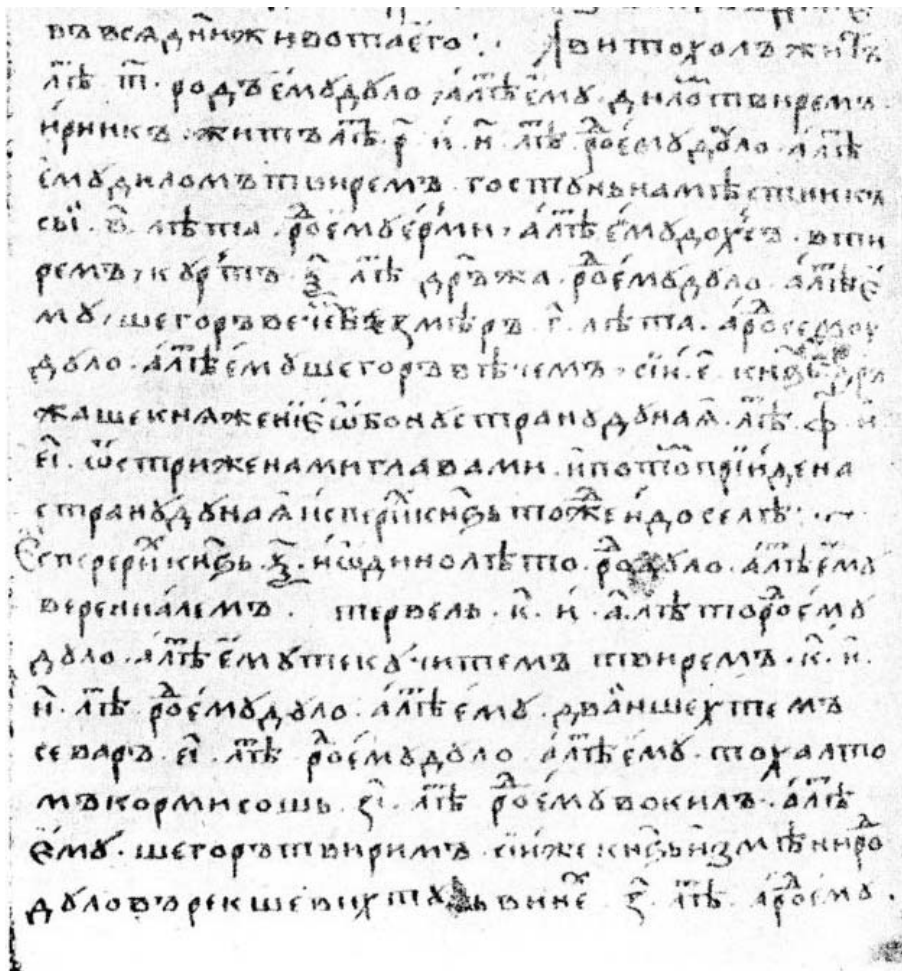 въ всѧ дн҃и живота е҆го ⁘ Авитохолъ жит̑ъ
лѣⷮ т҃. родъ е҆мꙋ дꙋло, а҆ лѣⷮ е҆мꙋ. диломъ твиремъ
и҆рникъ. житъ лѣⷮ. р҃ и҆ н҃ лѣⷮ. роⷣ е҆мꙋ дꙋло. а҆ лѣⷮ
е҆мꙋ диломъ твиремъ. гостꙋнъ намѣстникъ
сыи҆. в҃. лѣта. роⷣ е҆мꙋ е҆рми, а҆ лѣⷮ е҆мꙋ дохсъ. вти
ремъ, кꙋртъ. ѯ҃ лѣⷮ дръжа. роⷣ е҆мꙋ дꙋло. а҆ лѣⷮ є҆
мꙋ, шегоръ вечемъ
безмѣръ. г҃. лѣта. а҆ роⷣ семꙋ
дꙋло. а҆ лѣⷮ е҆мꙋ шегоръ вѣчемъ, сїи. е҃. кнѧз дръ
жаше кнѧженїе ѡ҆бонꙋ странꙋ дꙋнаꙗ. лѣⷮ. ф҃. и҆
е҃і. ѡ҆стриженами главами. и҆ потоⷨ прїиде на
странꙋ дꙋнаꙗ и҆сперихъ кн҃зь тожⷣе и҆ доселѣ ⁘
Есперерихъ кн҃зь. ѯ҃. и҆ ѡ҆дино лѣто. роⷣ дꙋло. а҆ лѣⷮ е҆мꙋ
верениалемъ. тервель. к҃. и҆. а҃. лѣто. роⷣ е҆мꙋ
дꙋло. а҆ лѣⷮ е҆мꙋ текꙋчитемъ твиремъ. к҃. и҆.
и҃. лѣⷮ роⷣ е҆мꙋ дꙋло. а҆ лѣⷮ е҆мꙋ. дваншехтемъ
севаръ. е҃і. лѣⷮ роⷣ е҆мꙋ дꙋло а҆ лѣⷮ е҆мꙋ. тохалто
мъ кормисошь. з҃і. лѣⷮ роⷣ е҆мꙋ вокилъ. а҆ лѣⷮ
є҆мꙋ. шегоръ твиримъ. сїи же кн҃зь и҆змѣни роⷣ
дꙋловъ рекше вихтꙋнь винеⷯ. з҃. лѣⷮ. а҆ роⷣ е҆мꙋ.